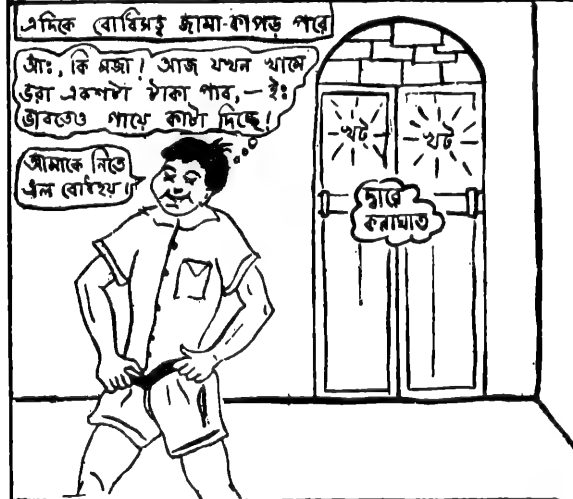 এদিকে বোধিসত্ত্ব জামা-কাপড় পরে
আঃ, কি মজা! আজ যখন খামে
ভরা একশটা টাকা পাব, — ইঃ
ভাবতেও গায়ে কাটা দিচ্ছে!
আমাকে নিতে
এল বোধহয়!!
খট
খট
দ্বারে
করাঘাত